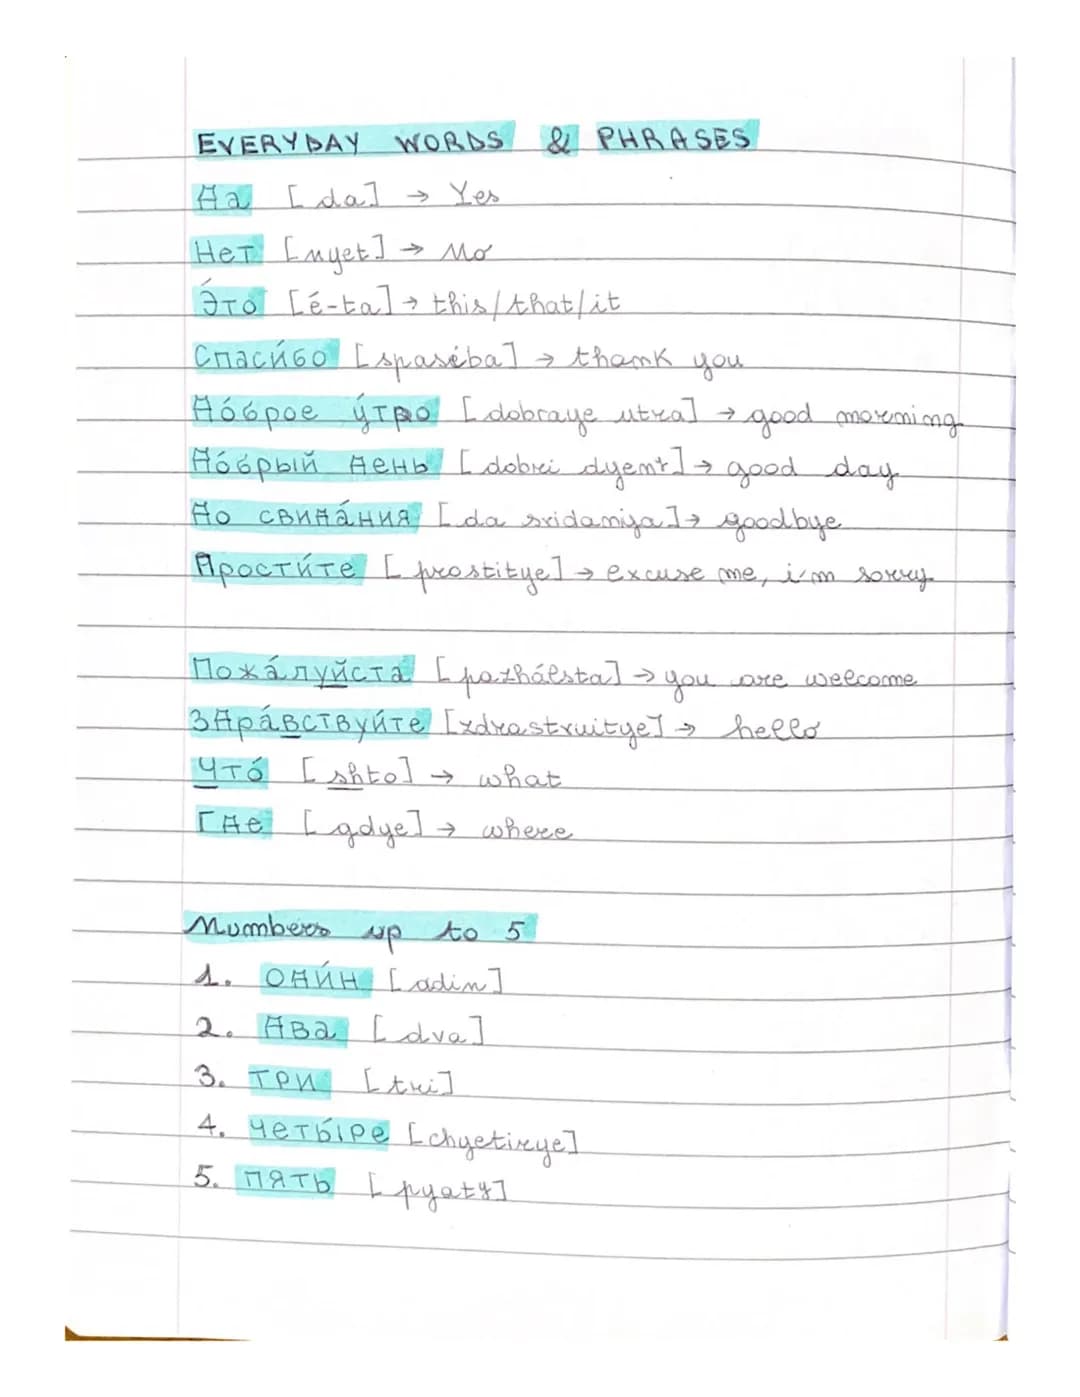 EVERYDAY WORDS & PHRASES
Да [da] → Yes
Нет [nyet] → No
Э́то [é-ta] → this/that/it
Спаси́бо [spaséba] → thank you
До́брое у́тро [dobraye utra] → good morning
До́брый день [dobrei dyent] → good day
До свида́ния [da svidaniya] → goodbye
Прости́те [prostitye] → excuse me, i'm sorry
Пожа́луйста [pazhálsta] → you are welcome
Здра́вствуйте [zdrastvuitye] → hello
Что́ [shto] → what
Где [gdye] → where
Numbers up to 5
1. оди́н [adin]
2. Два [dva]
3. три [tri]
4. четы́ре [chyetirye]
5. пять [pyat]